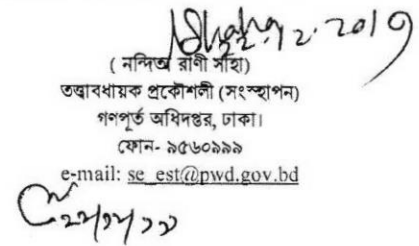 ( নন্দিতা রাণী সাহা)
তত্ত্বাবধায়ক প্রকৌশলী (সংস্থাপন)
গণপূর্ত অধিদপ্তর, ঢাকা।
ফোন- ৯৫৬০৯৯৯
e-mail: se_est@pwd.gov.bd